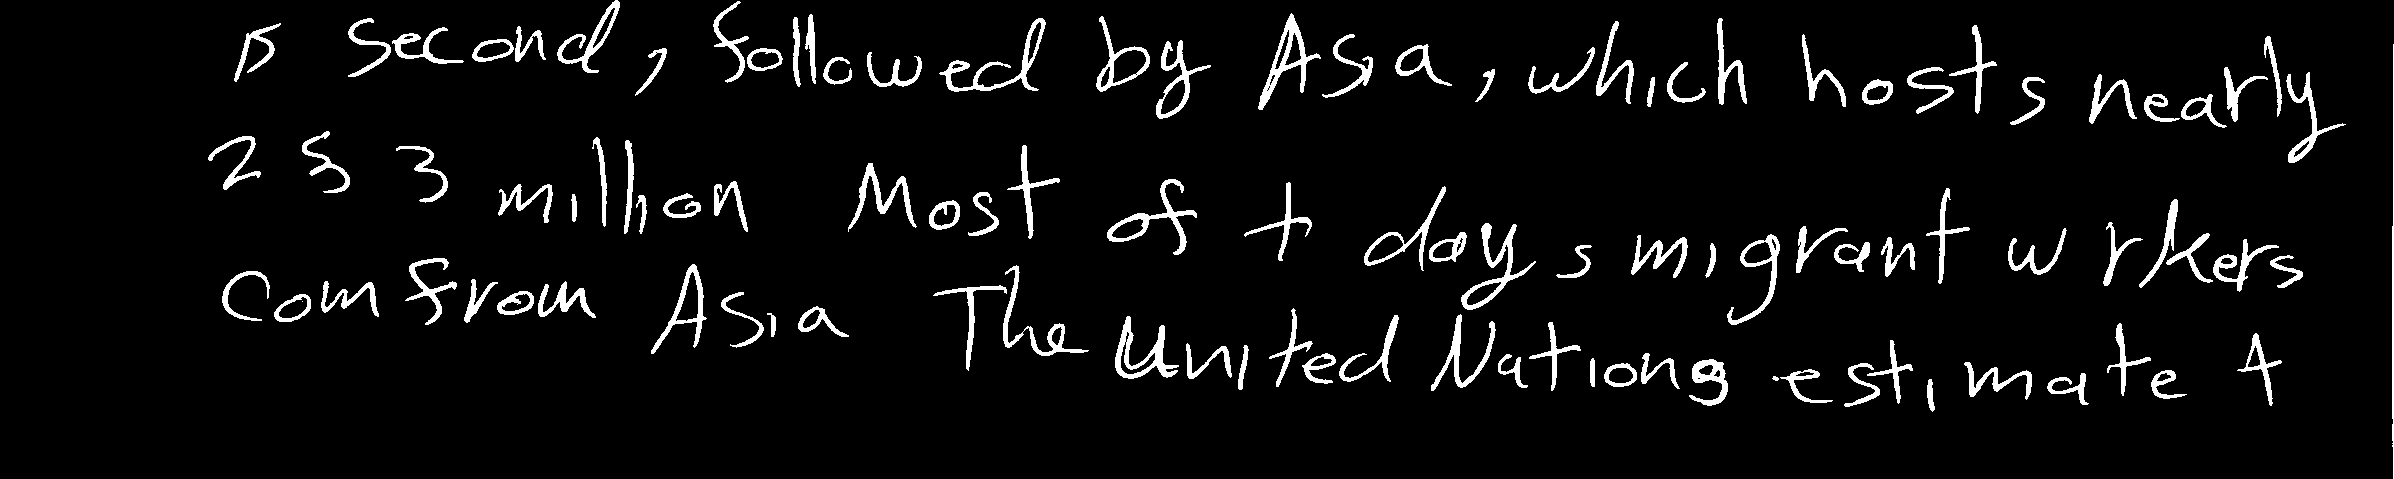 is second, followed by Asia, which hosts nearly
25 3 million Most of t day s migrant w rkers
com from Asia The United Nations estimate t